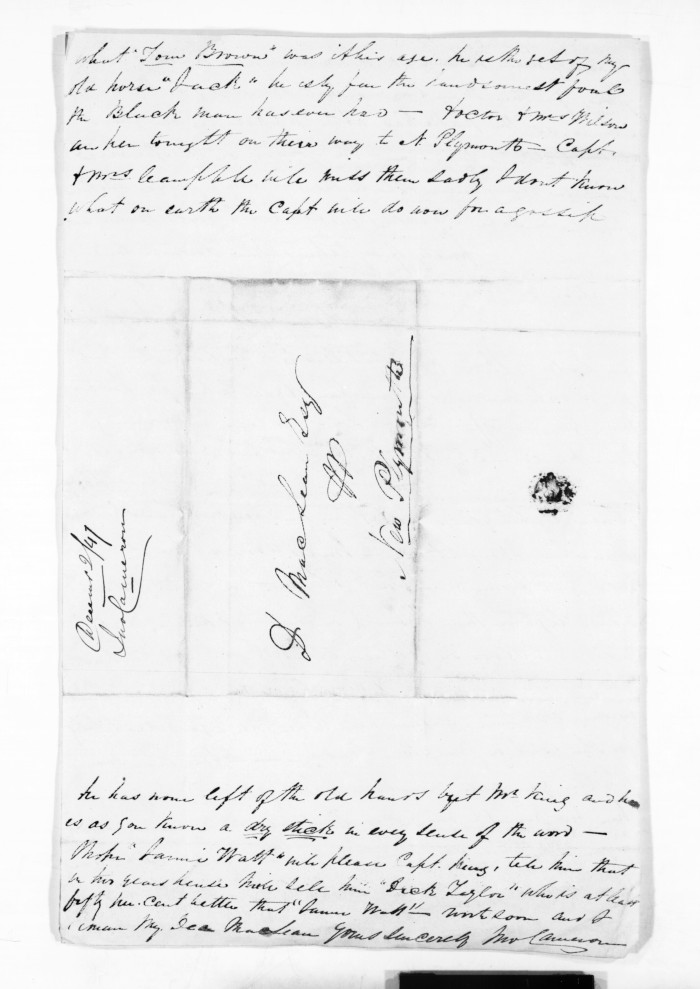 what "Tom Brown" was at his age. he is the get of my
old horse "Jack" he is by far the handsomest foal
the Black mare has ever had — Doctor & Mrs Wilson
are her tonight on their way to N Plymouth — Capt.
& Mrs Campbell will miss them sadly I dont know
what on earth the Capt will do now for a gossip
D MacLean Esq
New Plymouth
Decemr 2/47
Jno Cameron
he has none left of the old hands but Mr King and he
is as you know a dry stick in every sense of the word —
I hope "Jamie Watt" will please Capt. King, tell him that
two years hence I will sell him "Dick Taylor" who is at least
fifty per. Cent better that "Jamie Watt" — write soon and I
remain My Dear MacLean Yours Sincerely Jno Cameron